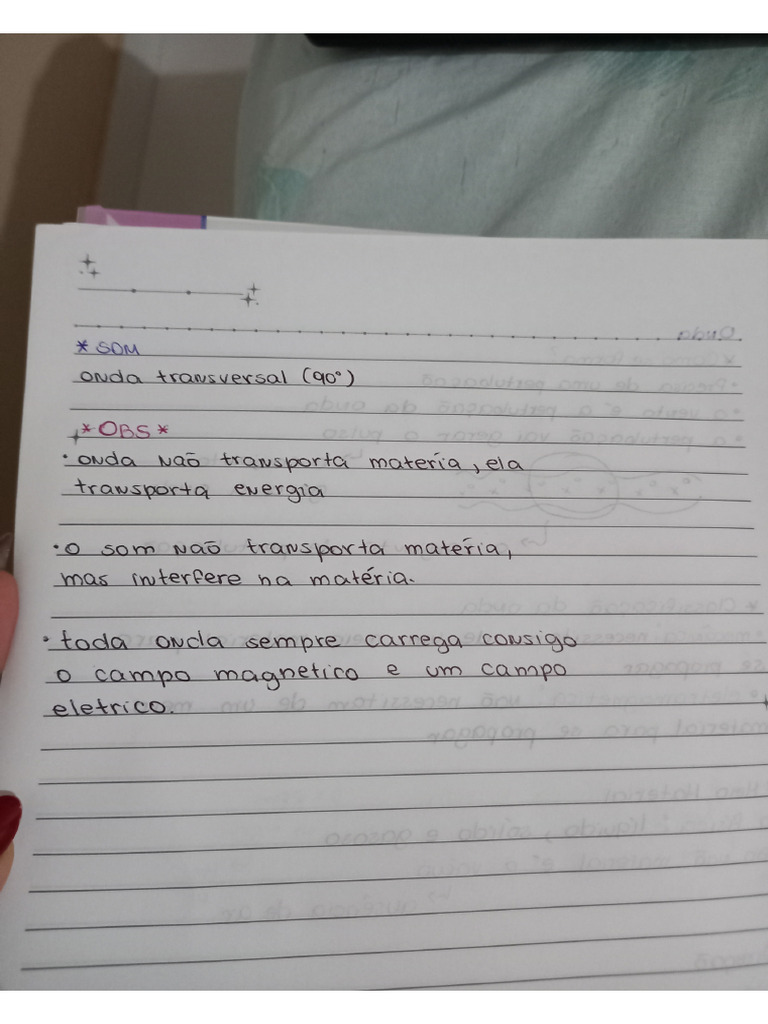 * SOM
onda transversal (90°)
* OBS *
• onda não transporta matéria, ela
transporta energia
• o som não transporta matéria,
mas interfere na matéria.
• toda onda sempre carrega consigo
o campo magnetico e um campo
eletrico.